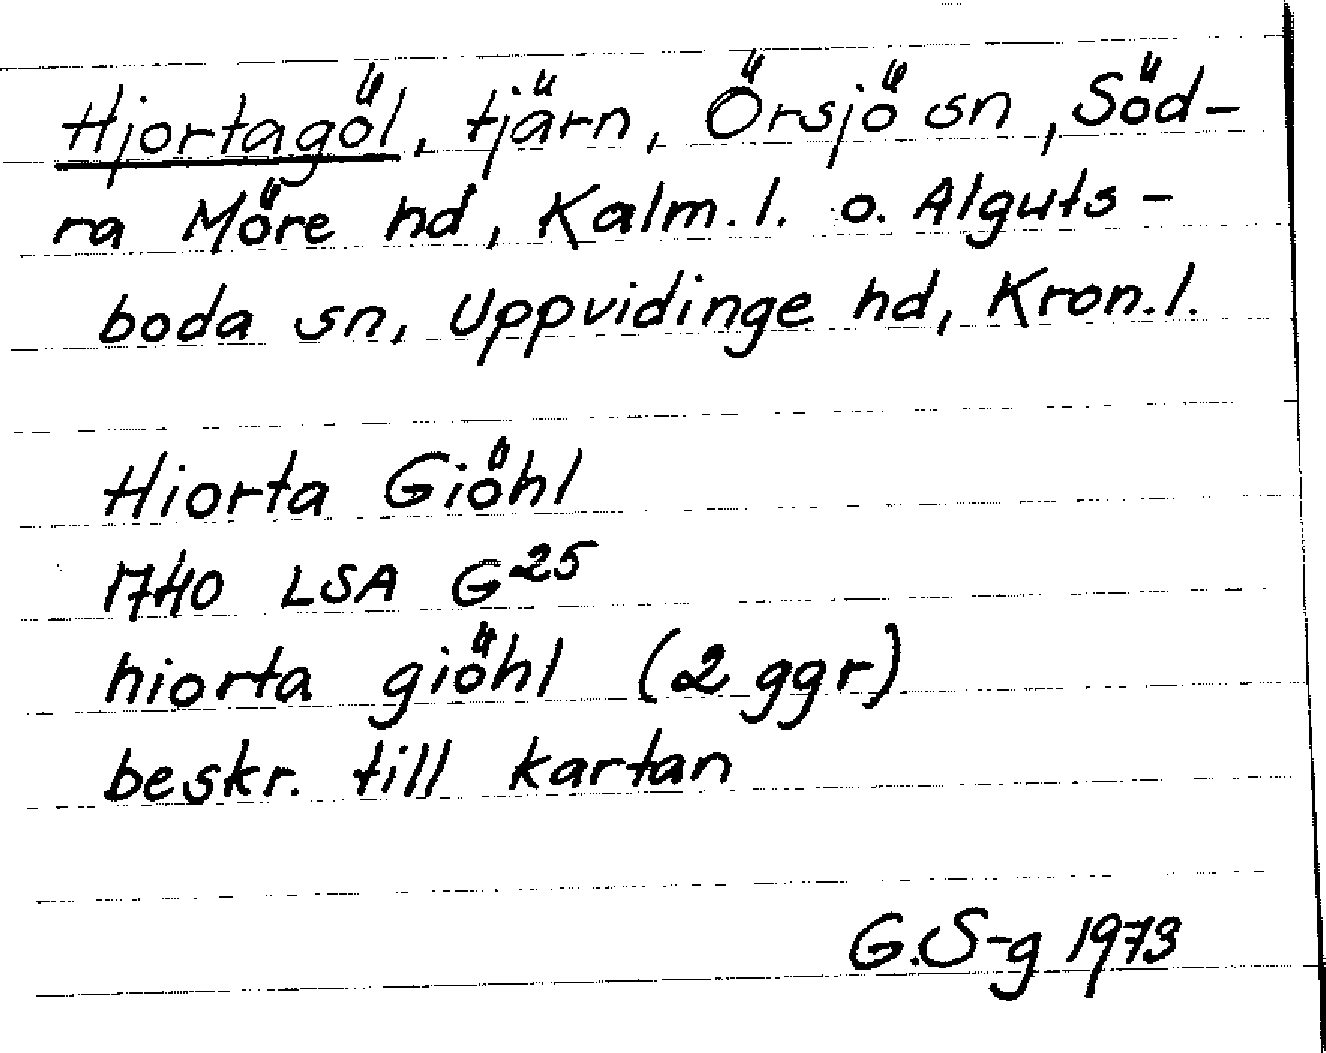 Hjortagöl, tjärn, Örsjö sn, Söd-
ra Möre hd, Kalm. l. o. Alguts-
boda sn, Uppvidinge hd, Kron. l.
Hiorta Giöhl
1740 LSA G25
hiorta giöhl (2 ggr)
beskr. till kartan
G.S-g 1973